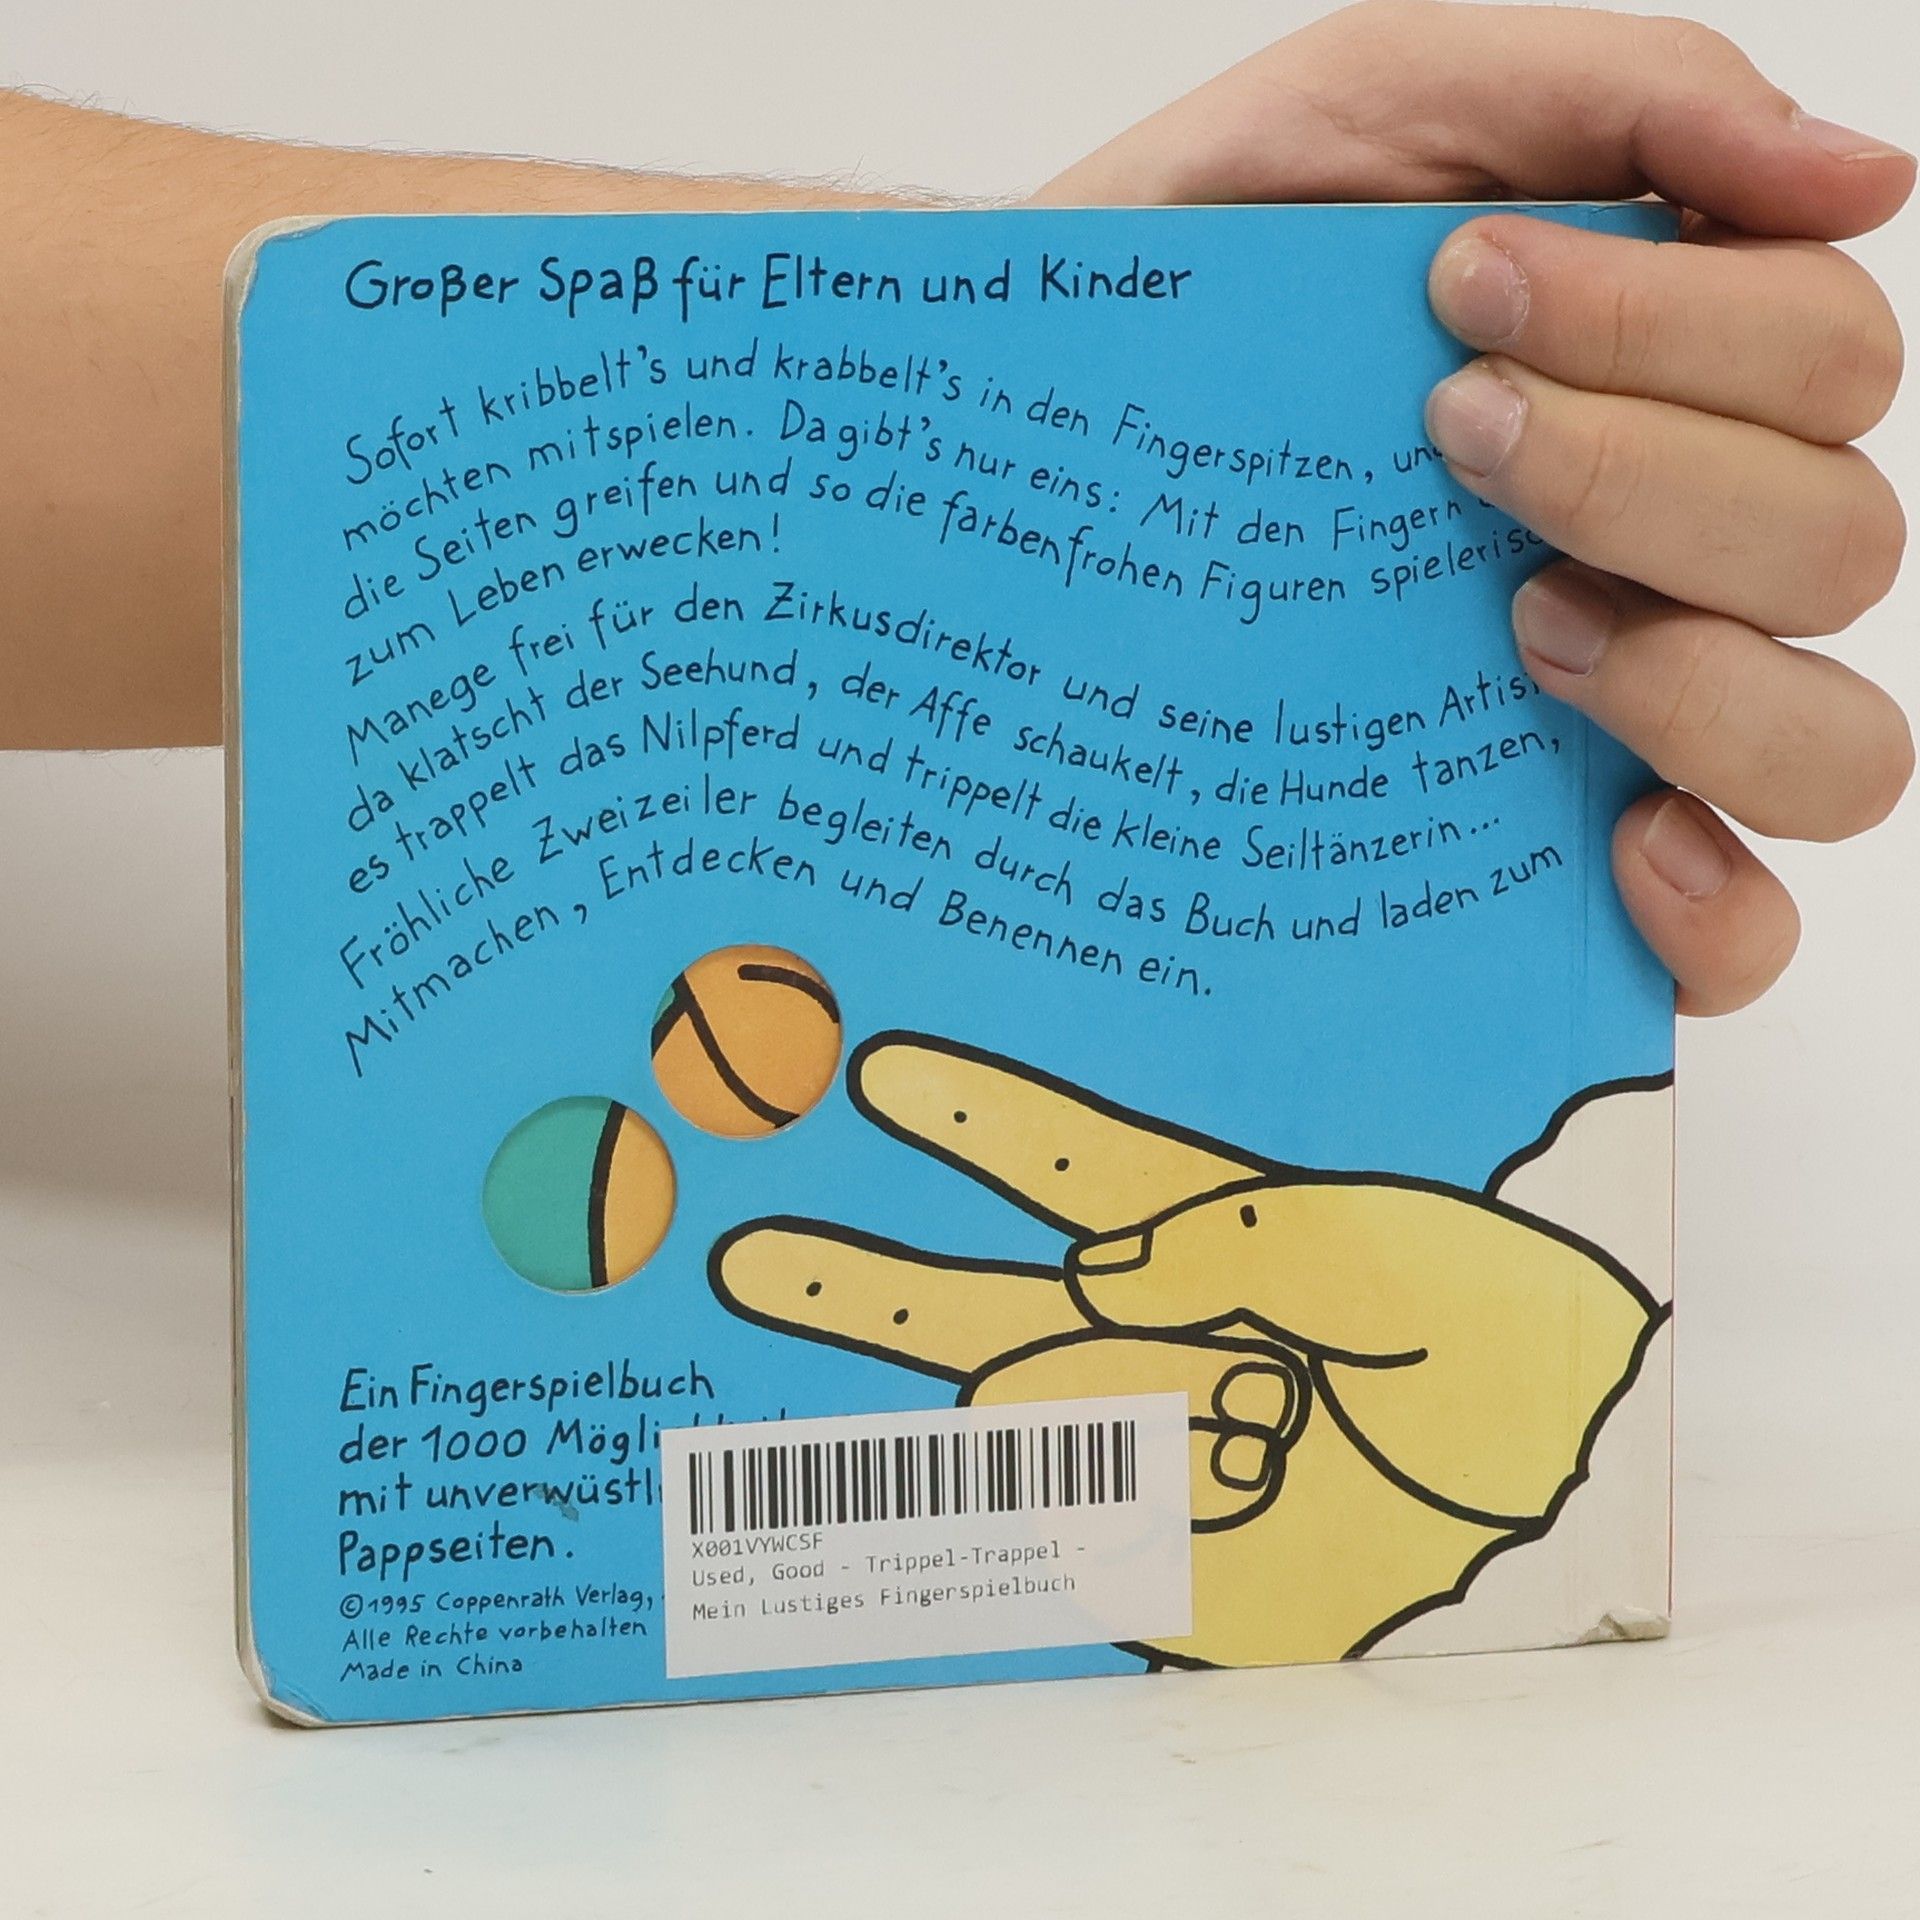 Großer Spaß für Eltern und Kinder
Sofort kribbelt's und krabbelt's in den Fingerspitzen,
möchten mitspielen. Da gibt's nur eins: Mit den Fingern
die Seiten greifen und so die farbenfrohen Figuren
zum Leben erwecken!
Manege frei für den Zirkusdirektor und seine lustigen
da klatscht der Seehund, der Affe schaukelt, die Hunde tanzen,
es trappelt das Nilpferd und trippelt die kleine Seiltänzerin...
Fröhliche Zweizeiler begleiten durch das Buch und laden zum
Mitmachen, Entdecken und Benennen ein.
Ein Fingerspielbuch
der 1000
mit
Pappseiten.
©1995 Coppenrath Verlag,
Alle Rechte vorbehalten
Made in China
X001VYWCSF
Used, Good - Trippel-Trappel -
Mein Lustiges Fingerspielbuch